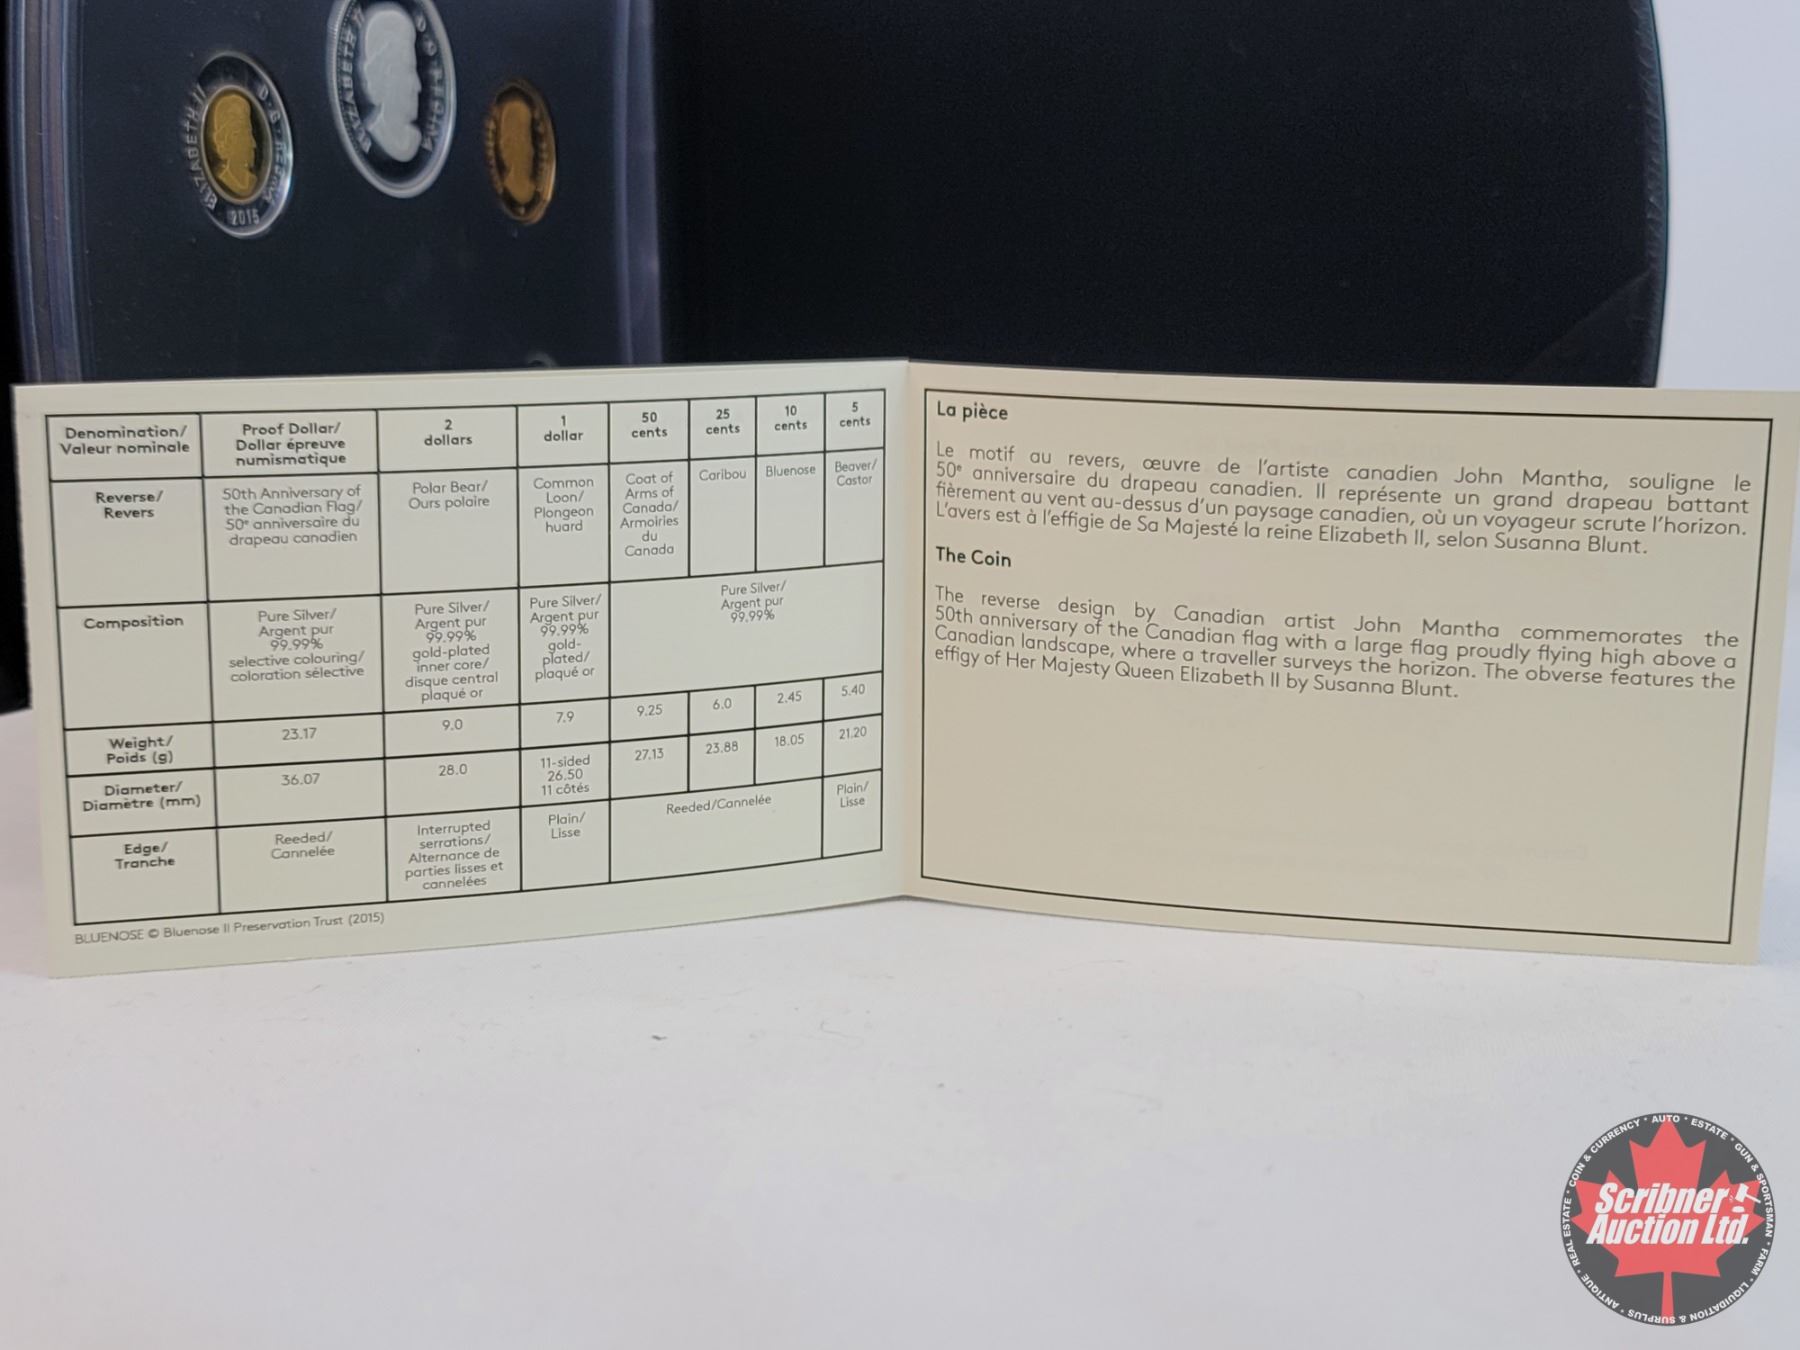 ELIZABETH II D·G·REGINA
2015
ELIZABETH II D·G·REGINA
Denomination/
Valeur nominale
Proof Dollar/
Dollar épreuve
numismatique
2
dollars
1
dollar
50
cents
25
cents
10
cents
5
cents
Reverse/
Revers
50th Anniversary of
the Canadian Flag/
50e anniversaire du
drapeau canadien
Polar Bear/
Ours polaire
Common
Loon/
Plongeon
huard
Coat of
Arms of
Canada/
Armoiries
du
Canada
Caribou
Bluenose
Beaver/
Castor
Composition
Pure Silver/
Argent pur
99.99%
selective colouring/
coloration sélective
Pure Silver/
Argent pur
99.99%
gold-plated
inner core/
disque central
plaqué or
Pure Silver/
Argent pur
99.99%
gold-
plated/
plaqué or
Pure Silver/
Argent pur
99.99%
Weight/
Poids (g)
23.17
9.0
7.9
9.25
6.0
2.45
5.40
Diameter/
Diamètre (mm)
36.07
28.0
11-sided
26.50
11 côtés
27.13
23.88
18.05
21.20
Edge/
Tranche
Reeded/
Cannelée
Interrupted
serrations/
Alternance de
parties lisses et
cannelées
Plain/
Lisse
Reeded/Cannelée
Plain/
Lisse
BLUENOSE © Bluenose II Preservation Trust (2015)
La pièce
Le motif au revers, œuvre de l'artiste canadien John Mantha, souligne le
50e anniversaire du drapeau canadien. Il représente un grand drapeau battant
fièrement au vent au-dessus d'un paysage canadien, où un voyageur scrute l'horizon.
L'avers est à l'effigie de Sa Majesté la reine Elizabeth II, selon Susanna Blunt.
The Coin
The reverse design by Canadian artist John Mantha commemorates the
50th anniversary of the Canadian flag with a large flag proudly flying high above a
Canadian landscape, where a traveller surveys the horizon. The obverse features the
effigy of Her Majesty Queen Elizabeth II by Susanna Blunt.
REAL ESTATE · COIN & CURRENCY · AUTO · ESTATE · GUN & SPORTSMAN · FARM · LIQUIDATION & SURPLUS · ANTIQUE ·
Scribner
Auction Ltd.